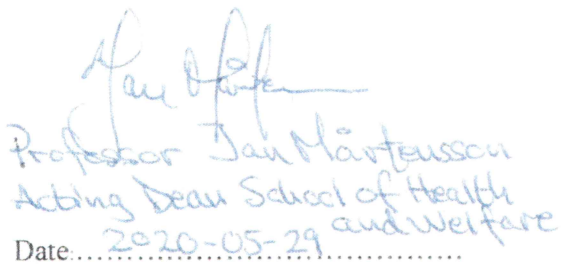 Jan Mårten
Professor Jan Mårtensson
Acting Dean School of Health
and Welfare
Date: 2020-05-29